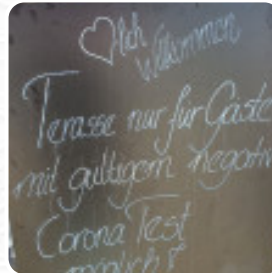 ♡lich
Willkommen
Terasse nur für Gäste
mit gültigem negativ
Corona Test
möglich!